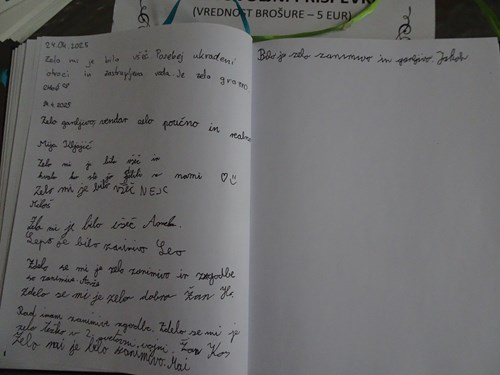 (VREDNOST BROŠURE – 5 EUR)
24.04.2025
Zelo mi je bilo všeč Posebej ukradeni
otroci in zastrupljena voda. Je zelo
24.4.2025
Zelo ganljivo, vendar zelo poučno in
Mija
Zelo mi je bilo všeč in
hvala ker ste jo delili z nami
Zelo mi je bilo všeč NEJC
Zelo mi je bilo všeč
Lepo je bilo zanimivo Leo
Zdelo se mi je zelo zanimivo in zgodbe
so zanimive.
Zdelo se mi je zelo dobro Žan H.
Rad imam zanimive zgodbe. Zdelo se mi je
zelo težko v 2 svetovni vojni. Žan Kos
Zelo mi je bilo zanimivo. Mai
Bilo je zelo zanimivo in ganljivo. Jakob